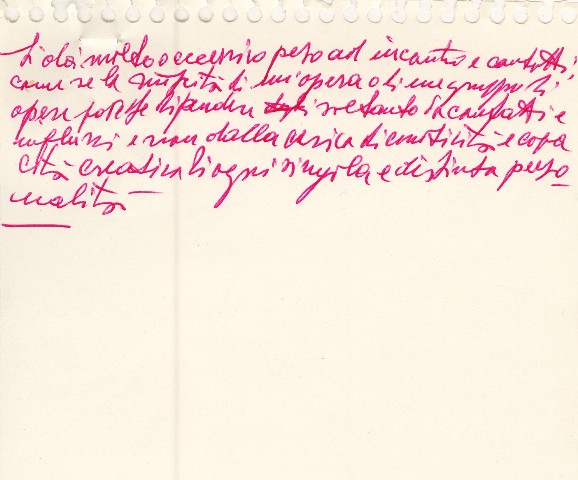 Si dà molto eccessivo peso ad incontri e contatti,
come se la novità di un'opera o di un gruppo di
opere potesse dipendere soltanto da contatti e
influssi e non dalla carica di emotività e capa
cità creativa di ogni singola e distinta perso
nalità